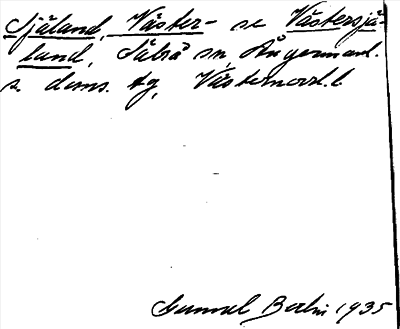 Själand, Väster- se Västersjä-
land, Säbrå sn, Ångermanl.
s. doms. tg, Västernorrl. l.
Gunnel Berlin 1935